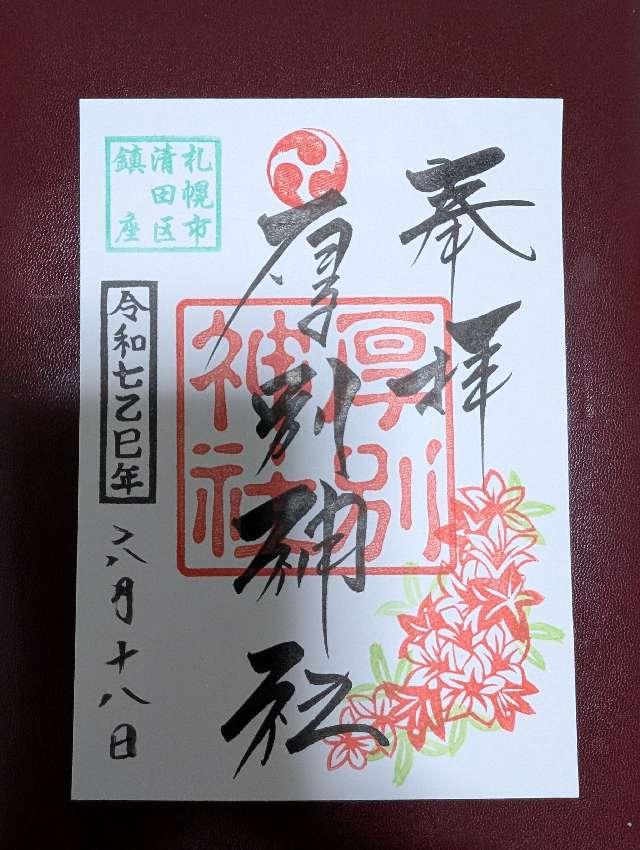 奉拝
厚別神社
厚別
神社
札幌市
清田区
鎮座
令和七乙巳年
六月十八日